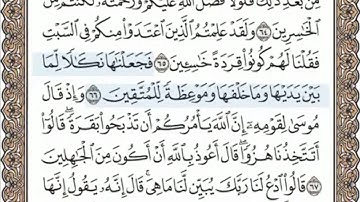 مِّنۢ بَعْدِ ذَٰلِكَ فَلَوْلَا فَضْلُ ٱللَّهِ عَلَيْكُمْ وَرَحْمَتُهُۥ لَكُنتُم مِّنَ
ٱلْخَٰسِرِينَ ٦٤ وَلَقَدْ عَلِمْتُمُ ٱلَّذِينَ ٱعْتَدَوْا۟ مِنكُمْ فِى ٱلسَّبْتِ
فَقُلْنَا لَهُمْ كُونُوا۟ قِرَدَةً خَٰسِـِٔينَ ٦٥ فَجَعَلْنَٰهَا نَكَٰلًا لِّمَا
بَيْنَ يَدَيْهَا وَمَا خَلْفَهَا وَمَوْعِظَةً لِّلْمُتَّقِينَ ٦٦ وَإِذْ قَالَ
مُوسَىٰ لِقَوْمِهِۦٓ إِنَّ ٱللَّهَ يَأْمُرُكُمْ أَن تَذْبَحُوا۟ بَقَرَةً ۖ قَالُوٓا۟
أَتَتَّخِذُنَا هُزُوًا ۖ قَالَ أَعُوذُ بِٱللَّهِ أَنْ أَكُونَ مِنَ ٱلْجَٰهِلِينَ
٦٧ قَالُوا۟ ٱدْعُ لَنَا رَبَّكَ يُبَيِّن لَّنَا مَا هِىَ ۚ قَالَ إِنَّهُۥ يَقُولُ إِنَّهَا